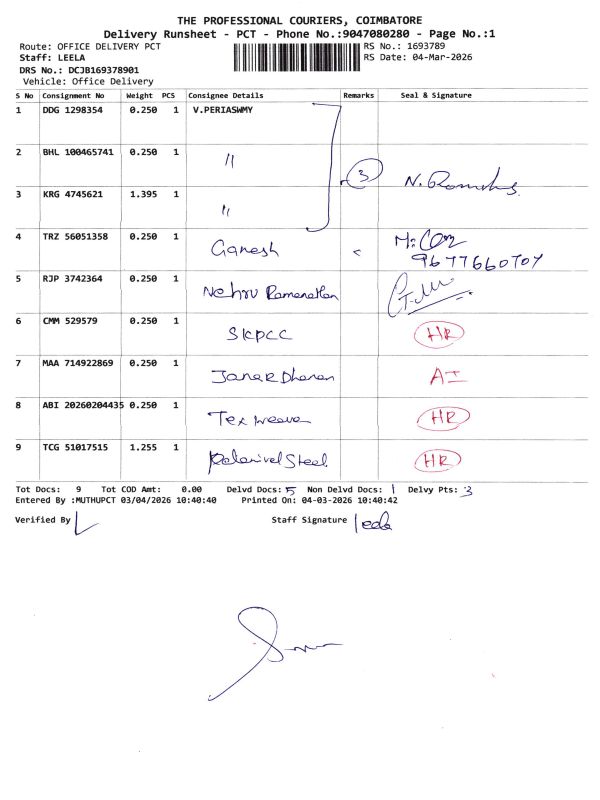 THE PROFESSIONAL COURIERS, COIMBATORE
Delivery Runsheet - PCT - Phone No.:9047080280 - Page No.:1
Route: OFFICE DELIVERY PCT RS No.: 1693789
Staff: LEELA RS Date: 04-Mar-2026
DRS No.: DCJB169378901
Vehicle: Office Delivery
S No Consignment No Weight PCS Consignee Details Remarks Seal & Signature
1 DDG 1298354 0.250 1 V.PERIASWMY
2 BHL 100465741 0.250 1 〃 3
3 KRG 4745621 1.395 1 〃
4 TRZ 56051358 0.250 1 Ganesh 9677660707
5 RJP 3742364 0.250 1 Nehru Ramanathan
6 CMM 529579 0.250 1 SKPCC HR
7 MAA 714922869 0.250 1 Janak Dharan AI
8 ABI 20260204435 0.250 1 Tex weave HR
9 TCG 51017515 1.255 1 Palanivel Steel HR
Tot Docs: 9 Tot COD Amt: 0.00 Delvd Docs: 5 Non Delvd Docs: 1 Delvy Pts: 3
Entered By :MUTHUPCT 03/04/2026 10:40:40 Printed On: 04-03-2026 10:40:42
Verified By Staff Signature Leela